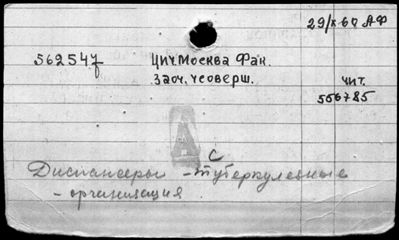 29/X 60 АФ
562547 ЦИЧ Москва Фак.
Заоч. усоверш.
чит.
556785
А
с
Диспансеры - туберкулезные
- организация